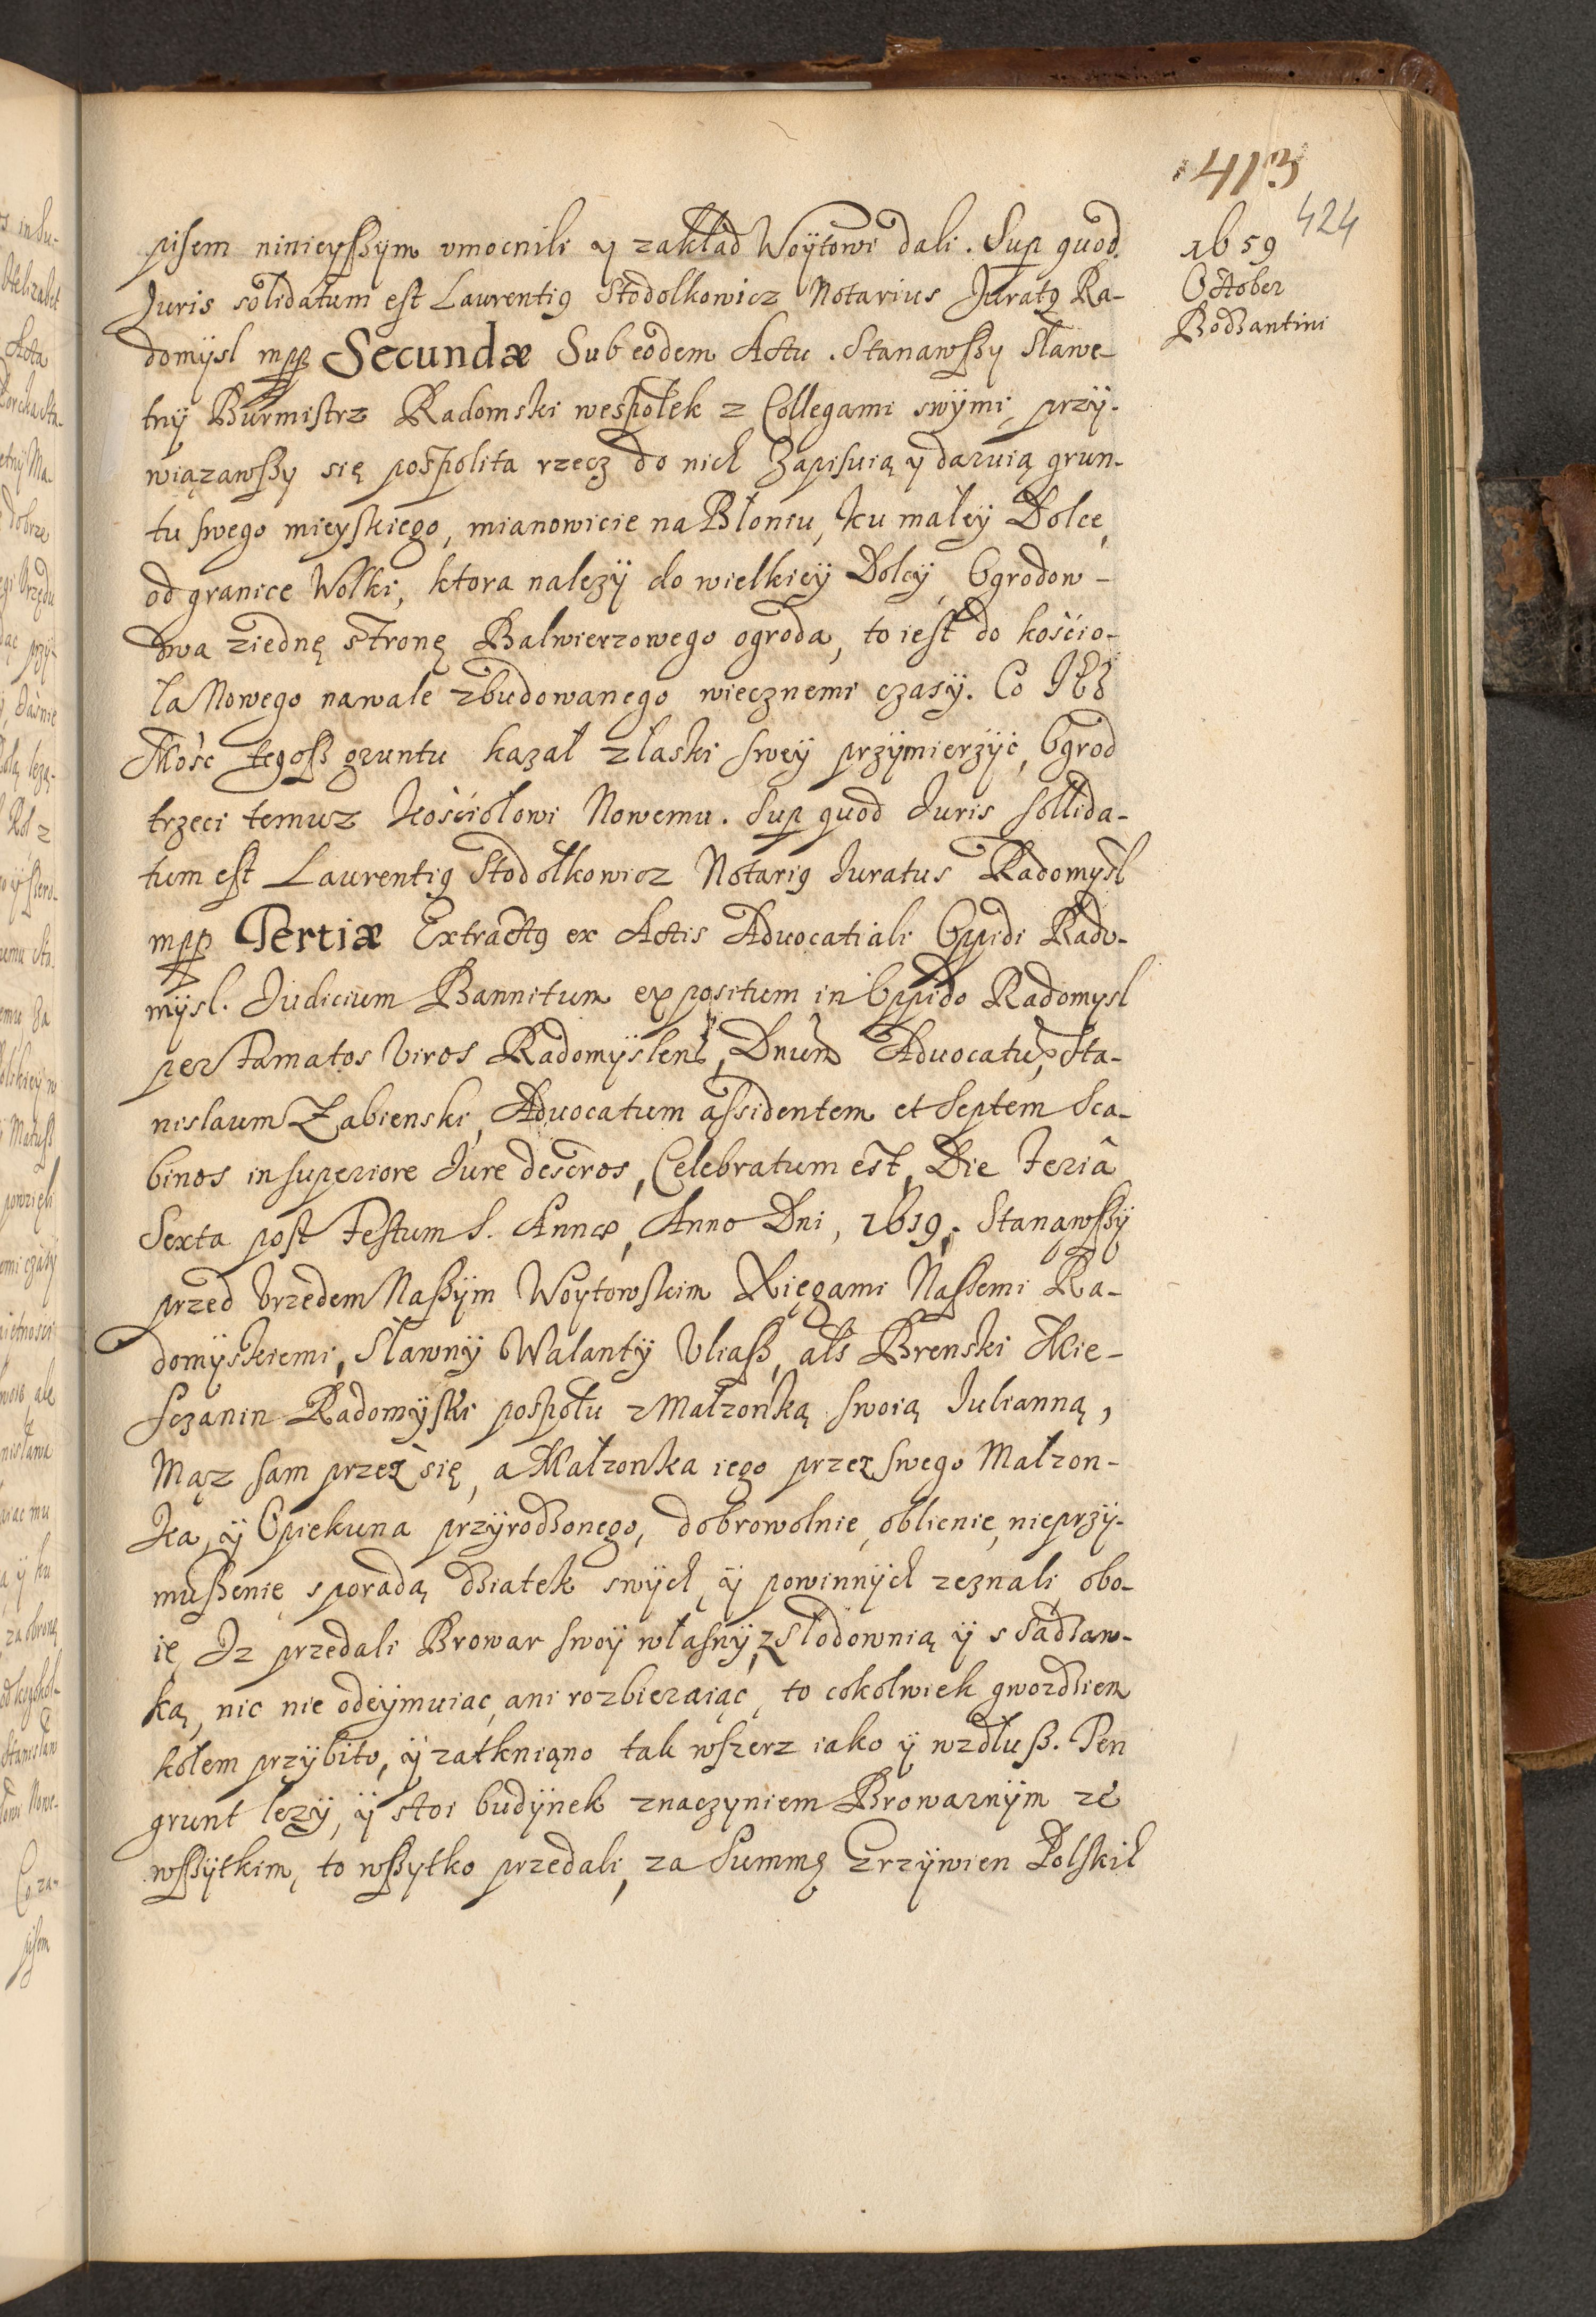 413
424
1659
October
Bodzantini
pisem ninieyszym umocnili y zakład Woÿtowi dali. Sup quod
Juris solidatum est Laurentiꝰ Stodolkowicz Notarius Juratꝰ Ra-
domÿsl mpp Secundæ Sub eodem Actu. Stanawszy Sławe-
tnÿ Burmistrz Radomski wespołek z Collegami swÿmi, przÿ-
wiązawszy się pospolita rzecz do nich Zapisuią y daruią grun-
tu swego mieyskiego, mianowicie na Błoniu, ku małeÿ Dolce,
od granice Wolki, ktora nalezÿ do wielkieÿ Dolcÿ, Ogrodow-
dwa ziednę stronę Balwierzowego ogroda, to iest do kościo-
ła Nowego nawale zbudowanego wiecznemi czasÿ. Co JEᴢ
Mość tegosz gruntu kazał złaski sweÿ przÿmierzÿć, Ogrod
trzeci temuz Kościołowi Nowemu. Sup quod Juris sollida-
tum est Laurentiꝰ Stodołkowicz Notariꝰ Juratus Radomÿsl
mpp Tertiæ Extractꝰ ex Actis Advocatiali Oppidi Rado-
mÿsl. Judicium Bannitum expositum in Oppido Radomysl
per Famatos Viros Radomÿslens, Dnum Advocatũ, Sta-
nislaum Zabienski, Advocatum assidentem et Septem Sca-
binos in superiore Jure descros, Celebratum est, Die Feriâ
Sexta post Festum S. Annæ, Anno Dni, 1619, Stanawszÿ
przed Urzedem Naszÿm Woÿtowskim Xięgami Naszemi Ra-
domÿskiemi, Sławnÿ Walantÿ Uliasz, als Brenski Mie-
szczanin Radomÿski pospołu z Małzonką swoią Julianną,
Mąz sam przez się, a Małzonka iego przez swego Małzon-
ka, ÿ Opiekuna przÿrodzonego, dobrowolnie, oblicnie, nieprzÿ-
muszenie s poradą dziatek swÿch ÿ powinnÿch zeznali, obo-
ie, Iz przedali Browar swoÿ własnÿ, z Słodownią ÿ s Sadzaw-
ką, nic nie odeÿmuiac, ani rozbieraiąc, to cokolwiek gwozdziem
kołem przÿbito, ÿ zatkniąno tak wszerz iako ÿ wzdłusz. Ten
grunt lezÿ, ÿ stoi budÿnek znaczyniem Browarnÿm ze
wszÿtkim, to wszÿtko przedali, za Summę Grzÿwien Polskich